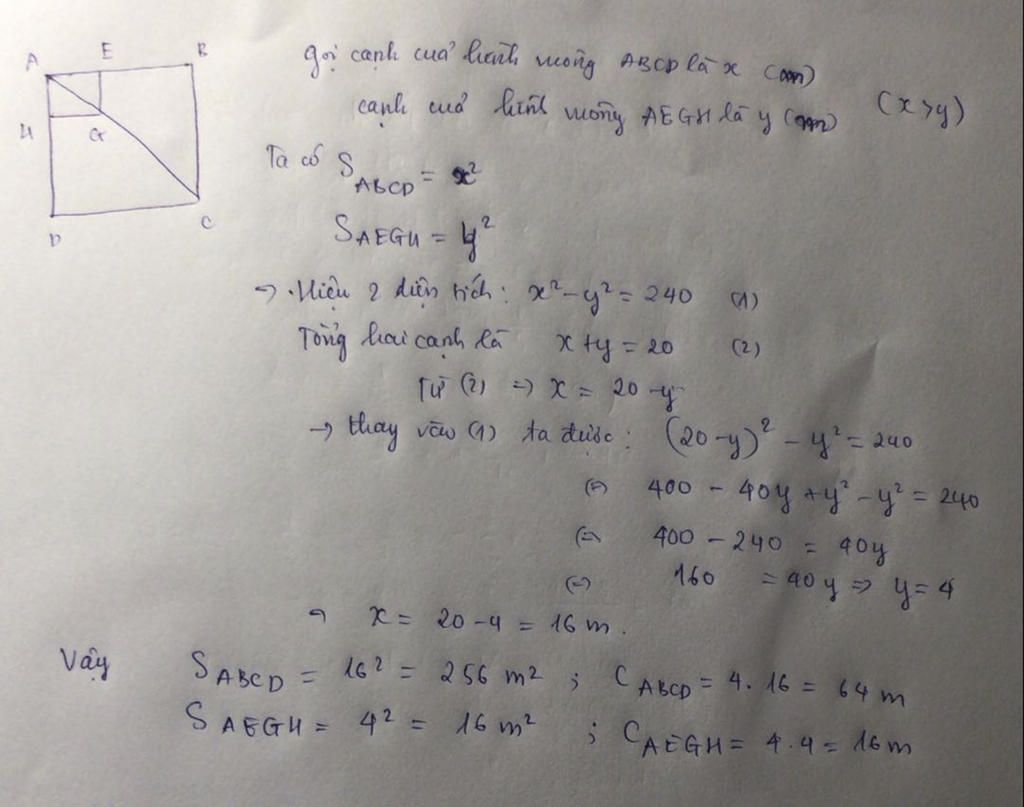 A E B
H G
D C
gọi cạnh của hình vuông ABCD là x (m)
cạnh của hình vuông AEGH là y (m) (x>y)
Ta có S_ABCD = x²
S_AEGH = y²
→ Hiệu 2 diện tích: x² - y² = 240 (1)
Tổng hai cạnh là x + y = 20 (2)
Từ (2) => x = 20 - y
→ thay vào (1) ta được: (20-y)² - y² = 240
(=) 400 - 40y + y² - y² = 240
(=) 400 - 240 = 40y
(=) 160 = 40y => y = 4
→ x = 20 - 4 = 16 m.
Vậy S_ABCD = 16² = 256 m² ; C_ABCD = 4. 16 = 64 m
S_AEGH = 4² = 16 m² ; C_AEGH = 4.4 = 16 m